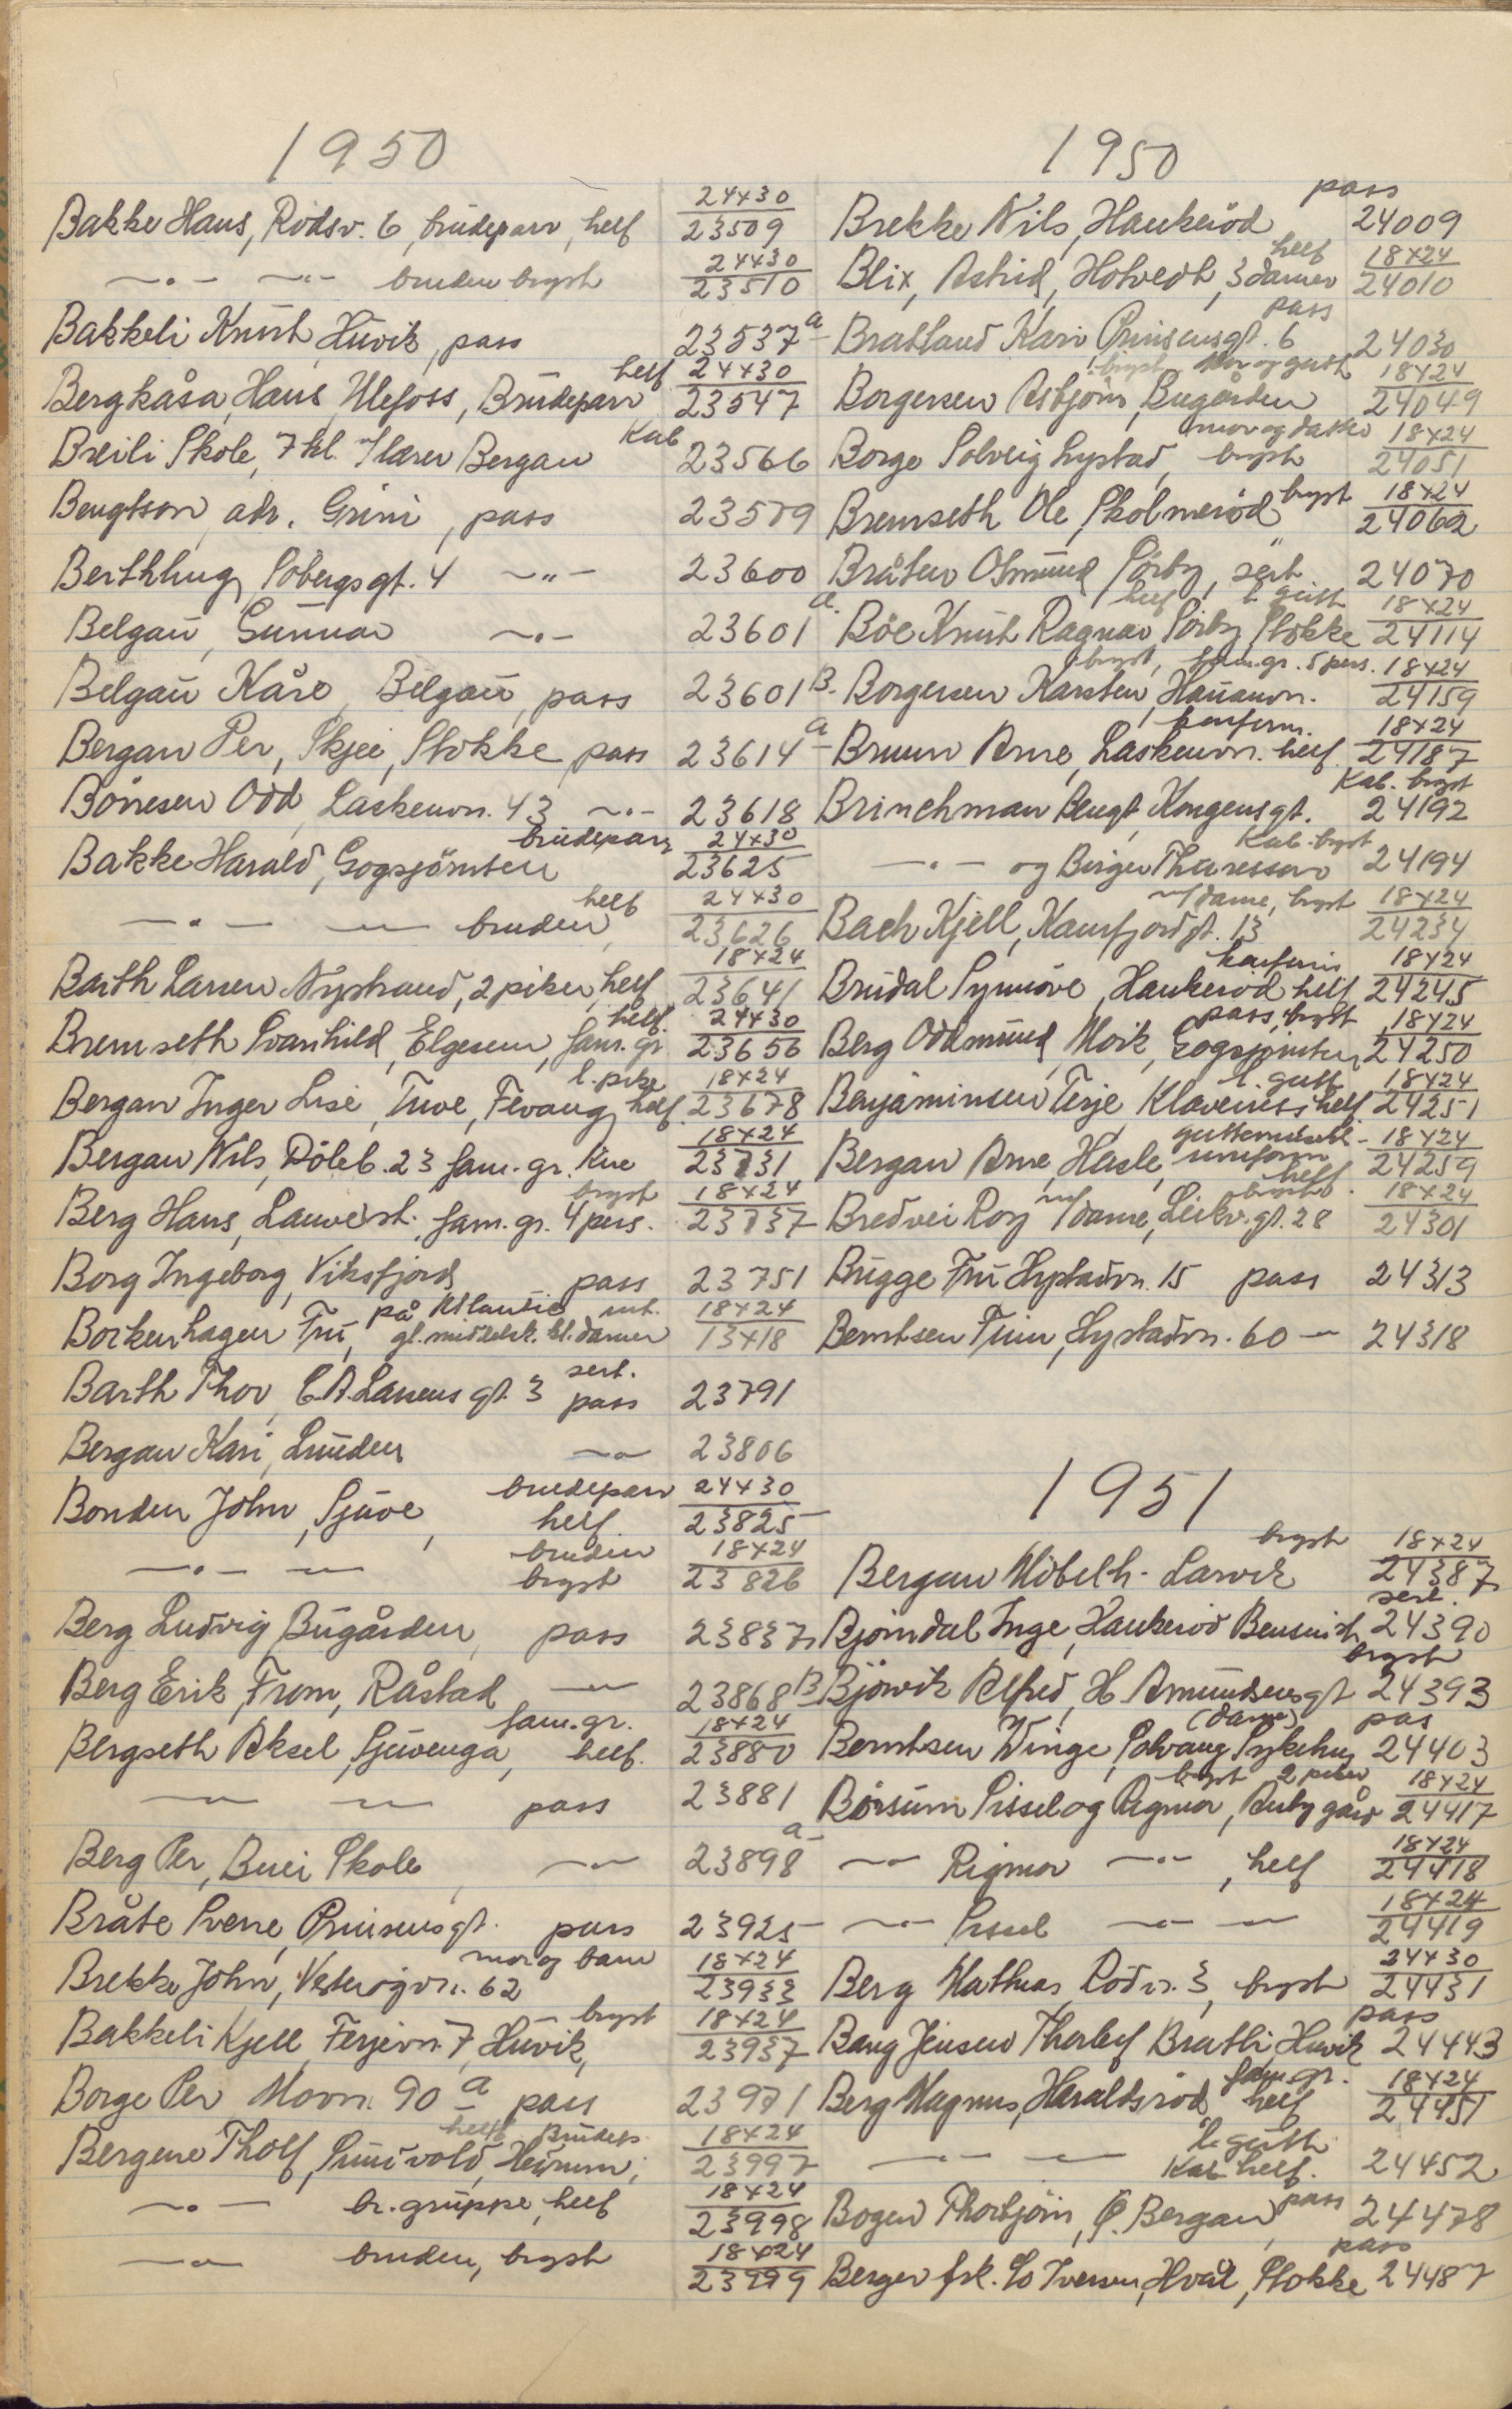 1950
Bakke Hans, Rødsv. 6, brudepar, helf 24x30 23509
—"— —"— bruden bryst 24x30 23510
Bakkeli Knut, Huvik, pass 23537 a
Bergkåsa, Hans, Ulefoss, Brudepar helf 24x30 23547
Breili Skole, 7 kl. Kab 23566
Bengtson, adr. Grini, pass 23579
Berthling, Sobergsgt. 4 —"— 23600
Belgau, Gunnar —"— 23601 a.
Belgau Kåre, Belgau, pass 23601 B.
Bergan Per, Skjee, Stokke pass 23614 a
Bönesen Odd, Laskenvn. 43 —"— 23618
Bakke Harald, Gogsjömten brudepar, 24x30 23625
—"— —"— bruden, helf 24x30 23626
Barth Larsen Nystrand, 2 piker, helf 18x24 23641
Bremseth Svanhild, Elgesem, fam. gr helf. 24x30 23656
Bergan Inger Lise, Tuve, Fevang, helf. l. pike 18x24 23678
Bergan Nils, Döleb. 23 fam. gr. kne 18x24 23731
Berg Hans, Lauvest. fam. gr. 4 pers. bryst 18x24 23737
Borg Ingeborg, Viksfjord, pass 23751
Bockenhagen Fru, på Atlantic gl. middelsk. bl. damer 18x24 13x18
Barth Thor, C. A. Larsens gt. 3 sert. pass 23791
Bergan Kari, Lunden —"— 23806
Bonden John, Sjuve, brudepar helf. 24x30 23825
—"— —"— bruden bryst 18x24 23826
Berg Ludvig Bugården, pass 23837
Berg Erik, From, Råstad —"— 23868 B
Bergseth Aksel, Sjuvenga, fam. gr. helf. 18x24 23880
—"— —"— pass 23881
Berg Per, Buei Skole, —"— 23898 a
Bråte Sverre, Prinsensgt. pass 23925
Brekke John, Vesterøyvn. 62 mor og barn 18x24 23933
Bakkeli Kjell, Ferjevn. 7, Huvik, bryst 18x24 23937
Borge Per Movn. 90 a pass 23971
Bergene Tholf, helf Brudep. 18x24 23997
—"— br. gruppe, helf 18x24 23998
—"— bruden, bryst 18x24 23999
1950
Brekke Nils, Haukeröd pass 24009
Blix, Astrid, Hotvedt, 3 damer helf 18x24 24010
Bratland Kari Prinsensgt. 6 pass 24030
Borgersen Asbjörn, Bugården bryst Mor og gutt 18x24 24049
Borge Solveig Lystad, bryst mor og datter 18x24 24051
Bremseth Ole, Skolmeröd bryst 18x24 24062
Bråten Osmund, Sörby, sert. 24070
Böe Knut Ragnar, Sörby, Stokke helf l. gutt 18x24 24114
Borgersen Karsten, Hauanvn. bryst, fam. gr. 5 pers. 18x24 24159
Bruun Arne, Laskenvn. helf. konfirm. 18x24 24187
Brinchman Bengt, Kongensgt. Kab. bryst 24192
—"— og Birger Thoressen Kab. bryst 24194
Bach Kjell, Kamfjordgt. 13 m/dame, bryst 18x24 24234
Brudal Synnöve, Haukeröd helf konfirm 18x24 24245
Berg Oddmund, Moik, Gogsjömten, pass, bryst 18x24 24250
Benjaminsen Terje, Klaveness helf l. gutt 18x24 24251
Bergan Arne, Hasle, uniform helf 18x24 24259
Bredvei Roy m/dame, Leikv. gt. 28 18x24 24301
Bugge Fru Hystadvn. 15 pass 24313
Berntsen Finn, Hystadvn. 60 —"— 24318
1951
Bergan Möbelh. Larvik bryst 18x24 24387
Bjørndal Inge, Haukeröd Bensinst. sert. 24390
Björvik Alfred, H. Amundsensgt bryst 24393
Berntsen Winge, Solvang Sykehus (dame) pas 24403
Börsum Sissel og Rigmor, Ruby gård bryst 2 piker 18x24 24417
—"— Rigmor —"—, helf 18x24 24418
—"— Sissel —"— —"— 18x24 24419
Berg Mathias, Rödvn. 3, bryst 24x30 24431
Bang Jensen Thorleif Bratli, Huvik pass 24443
Berg Magnus, Haraldsröd helf fam. gr. 18x24 24451
—"— —"— l. gutt Kab helf. 24452
Bogen Thorbjörn, Bergan pass 24478
Berger frk. c/o Iversen, Hval, Stokke pass 24487